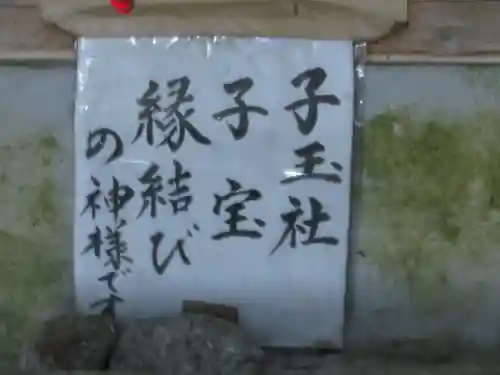 子玉社
子宝
縁結び
の神様です